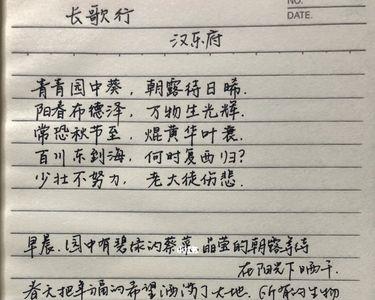 NO.
DATE.
长歌行
汉乐府
青青园中葵，朝露待日晞。
阳春布德泽，万物生光辉。
常恐秋节至，焜黄华叶衰。
百川东到海，何时复西归？
少壮不努力，老大徒伤悲。
早晨，园中有碧绿的葵菜，晶莹的朝露等待
在阳光下晒干。
春天把幸福的希望洒满了大地，所有的生物